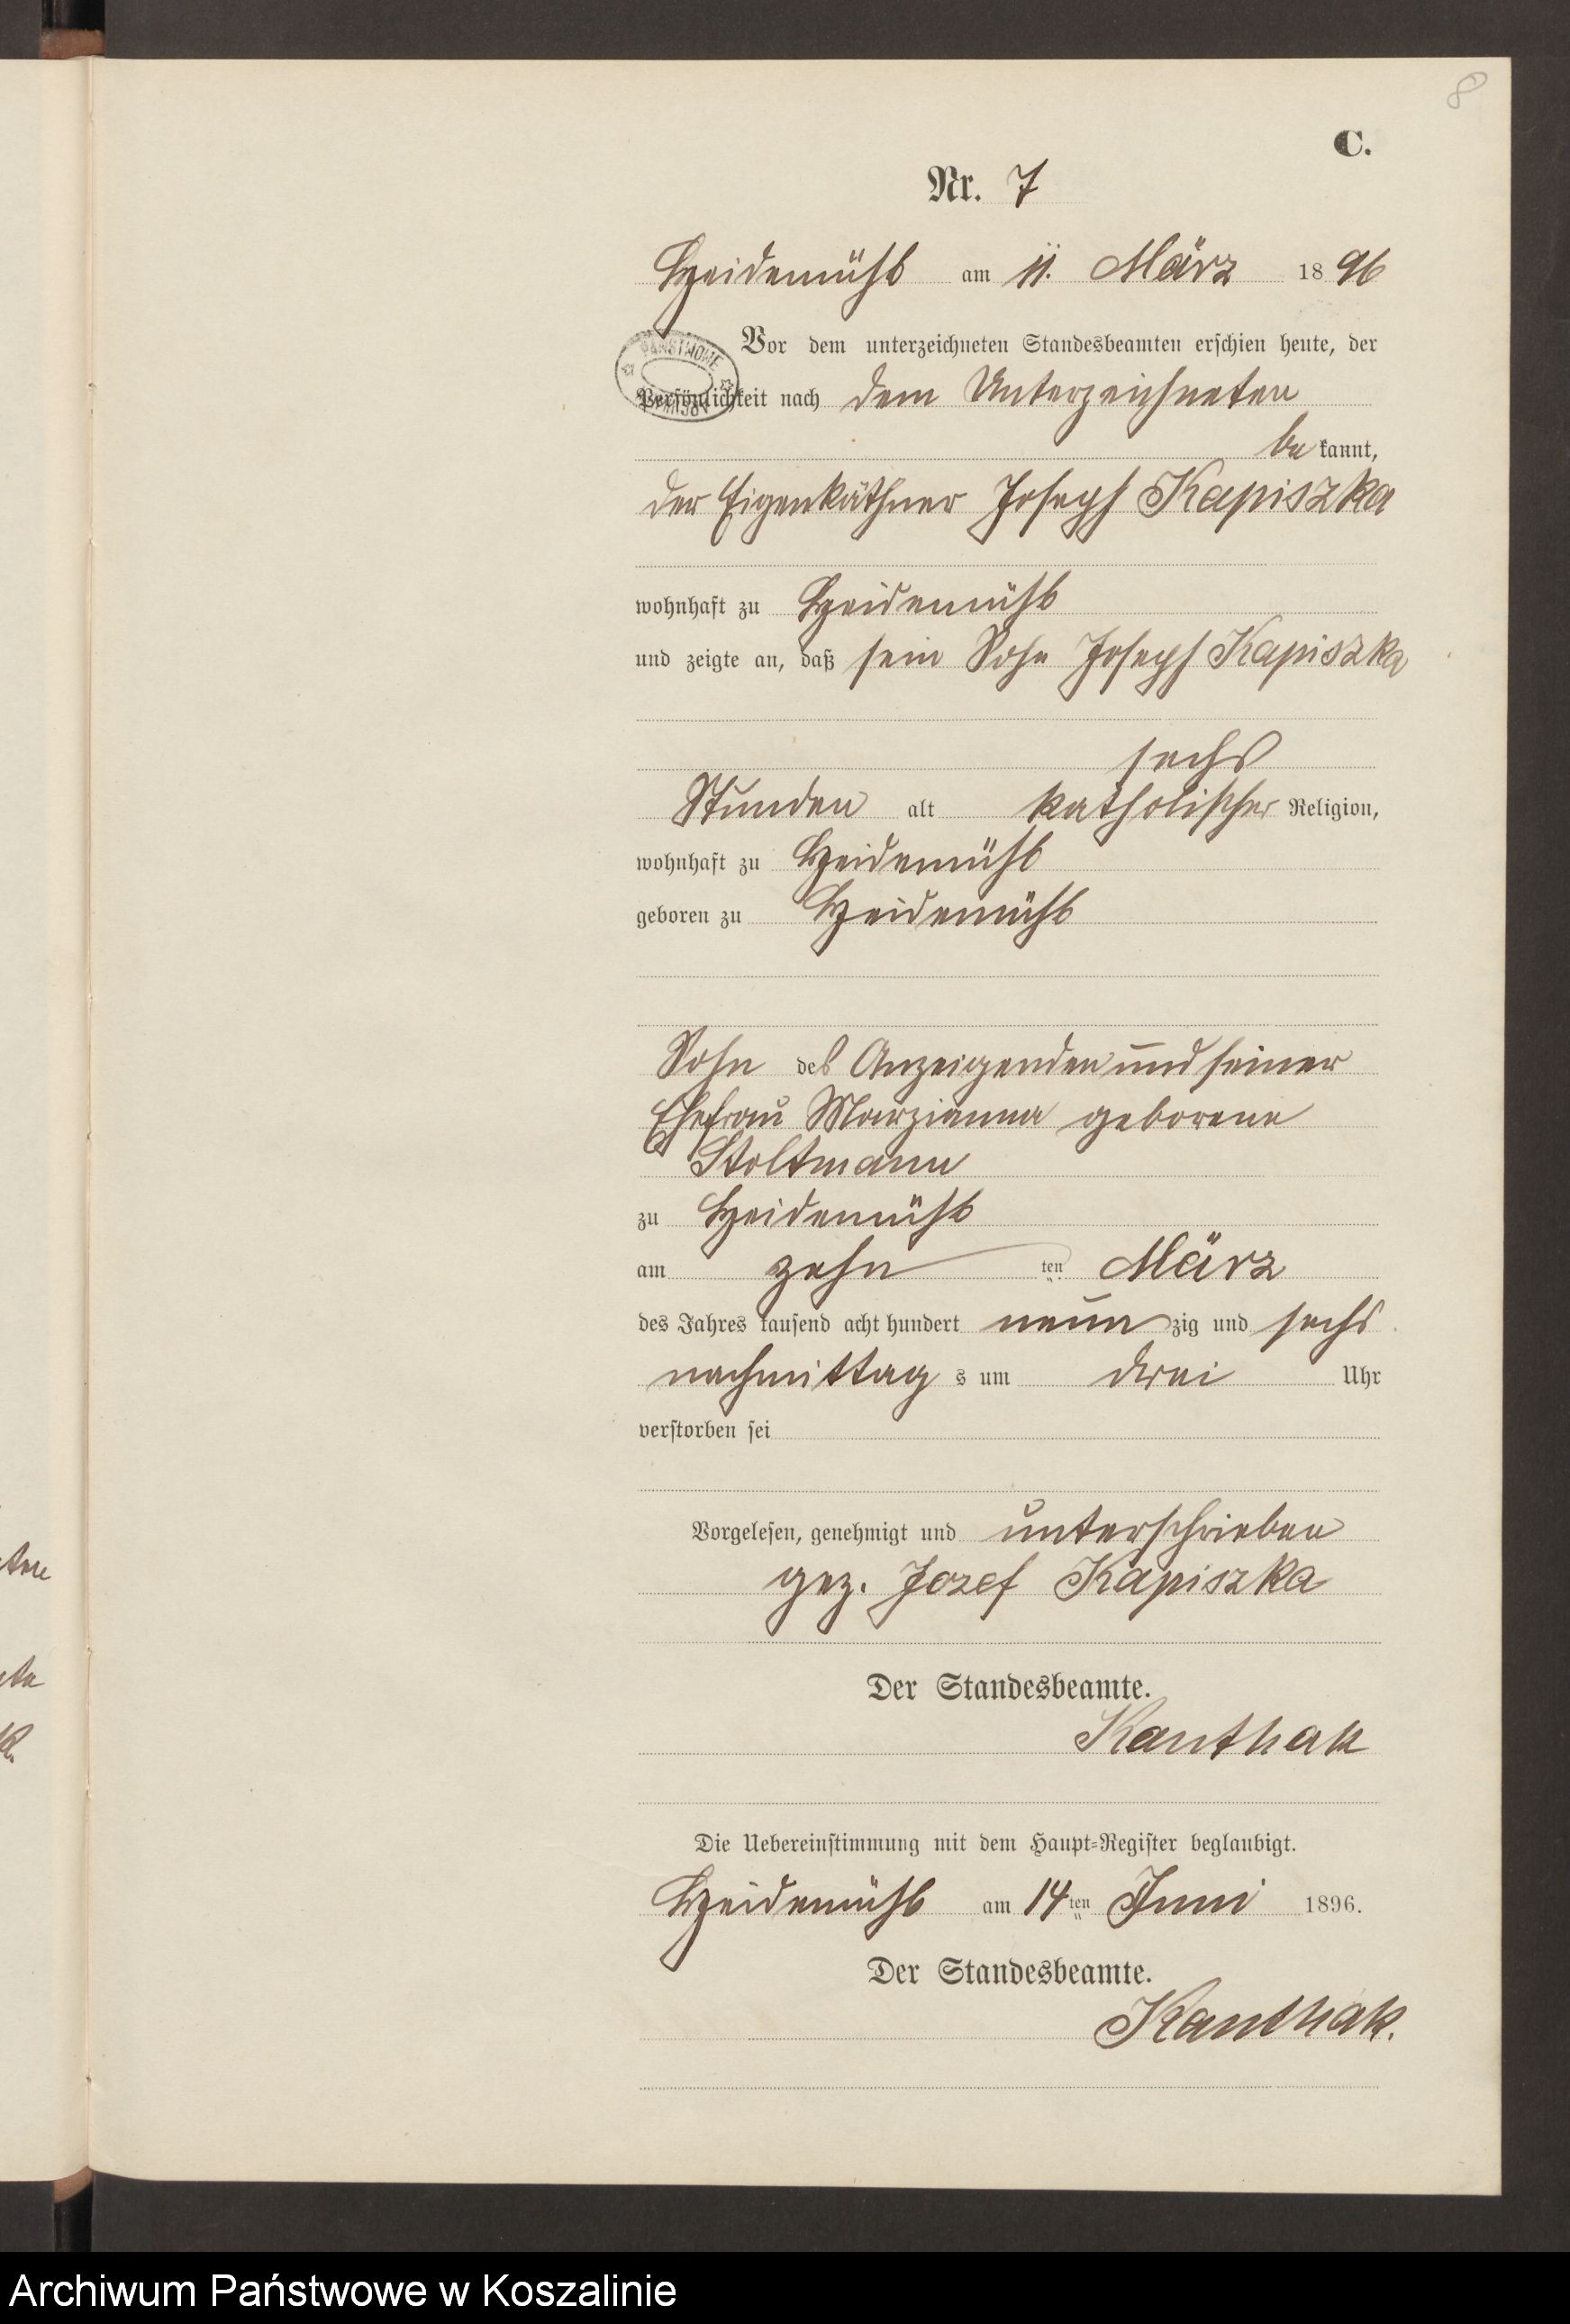 8
C.
Nr. 7
Heidemühl am 11. März 1896
Vor dem unterzeichneten Standesbeamten erschien heute, der
Persönlichkeit nach dem Unterzeichneten
be kannt,
der Eigenkäthner Joseph Kapiszka
wohnhaft zu Heidemühl
und zeigte an, daß sein Sohn Joseph Kapiszka
sechs
Stunden alt katholischer Religion,
wohnhaft zu Heidemühl
geboren zu Heidemühl
Sohn des Anzeigenden und seiner
Ehefrau Marzianna geborene
Stoltmann
zu Heidemühl
am zehn ten März
des Jahres tausend acht hundert neun zig und sechs
nachmittag s um drei Uhr
verstorben sei
Vorgelesen, genehmigt und unterschrieben
gez. Jozef Kapiszka
Der Standesbeamte.
Kanthak
Die Uebereinstimmung mit dem Haupt-Register beglaubigt.
Heidemühl am 14ten Juni 1896.
Der Standesbeamte.
Kanthak.
Archiwum Państwowe w Koszalinie